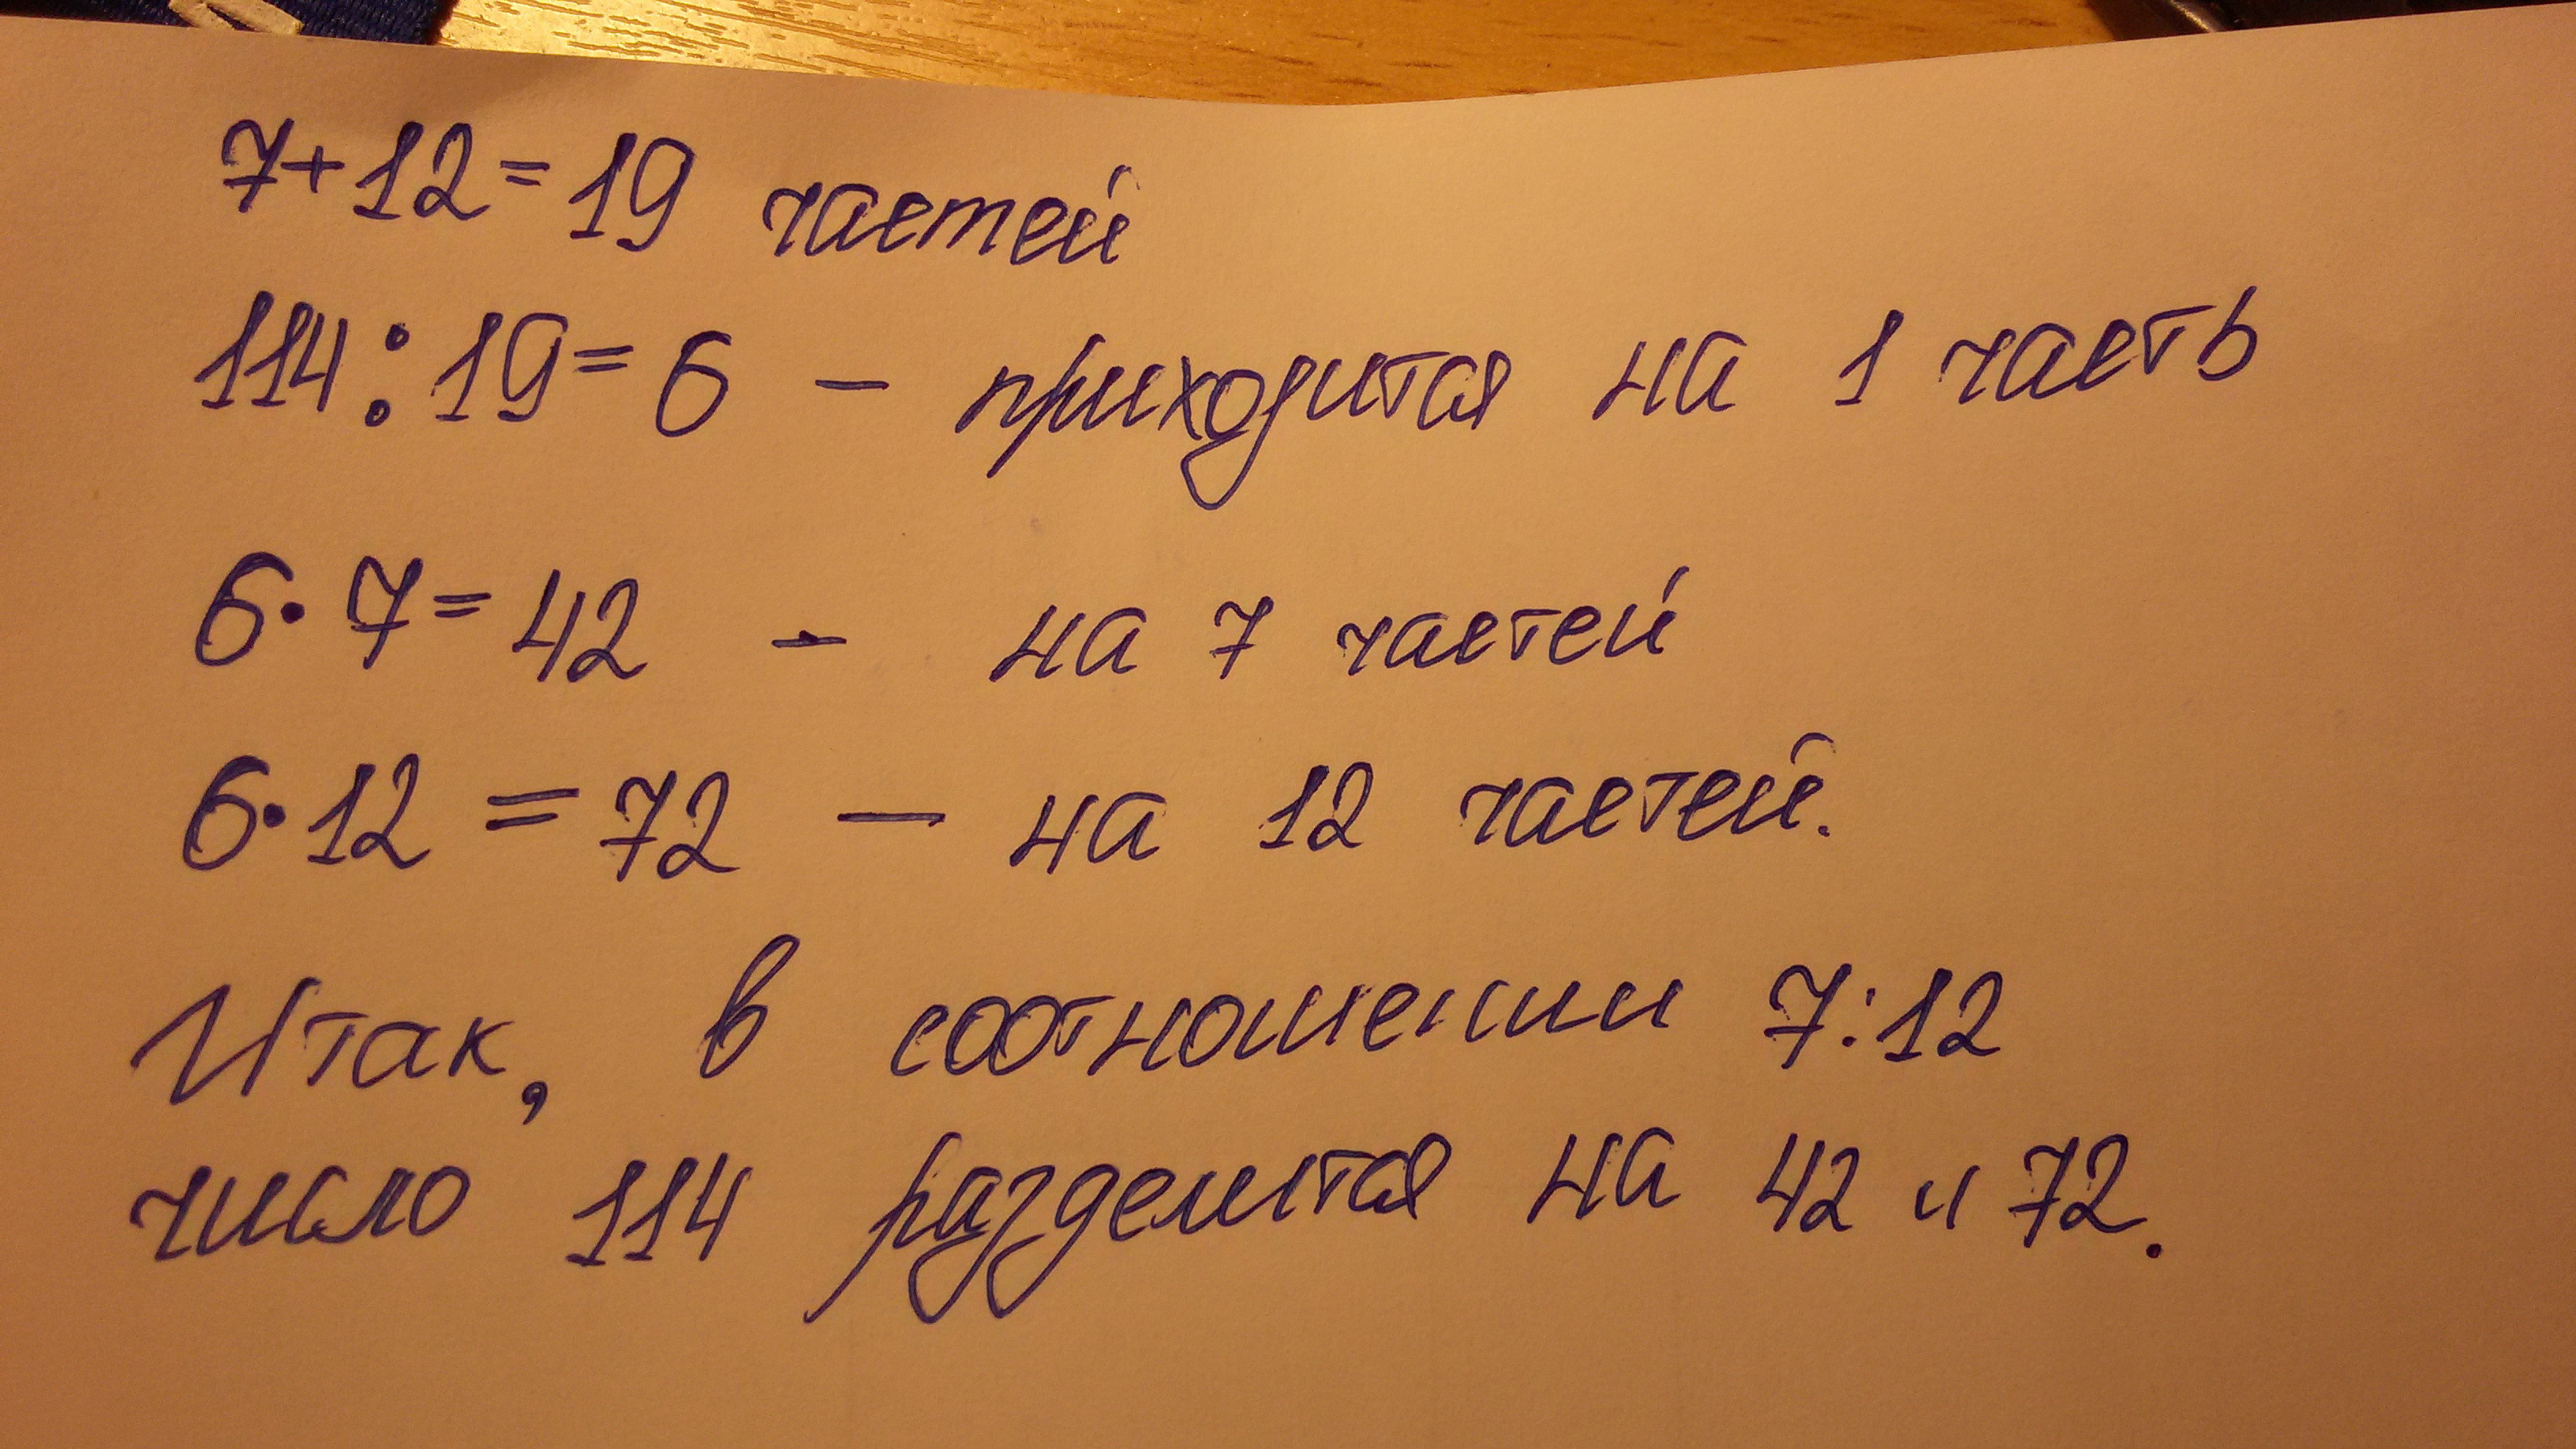 7+12=19 частей
114:19=6 – приходится на 1 часть
6·7=42 – на 7 частей
6·12=72 – на 12 частей.
Итак, в соотношении 7:12
число 114 разделится на 42 и 72.